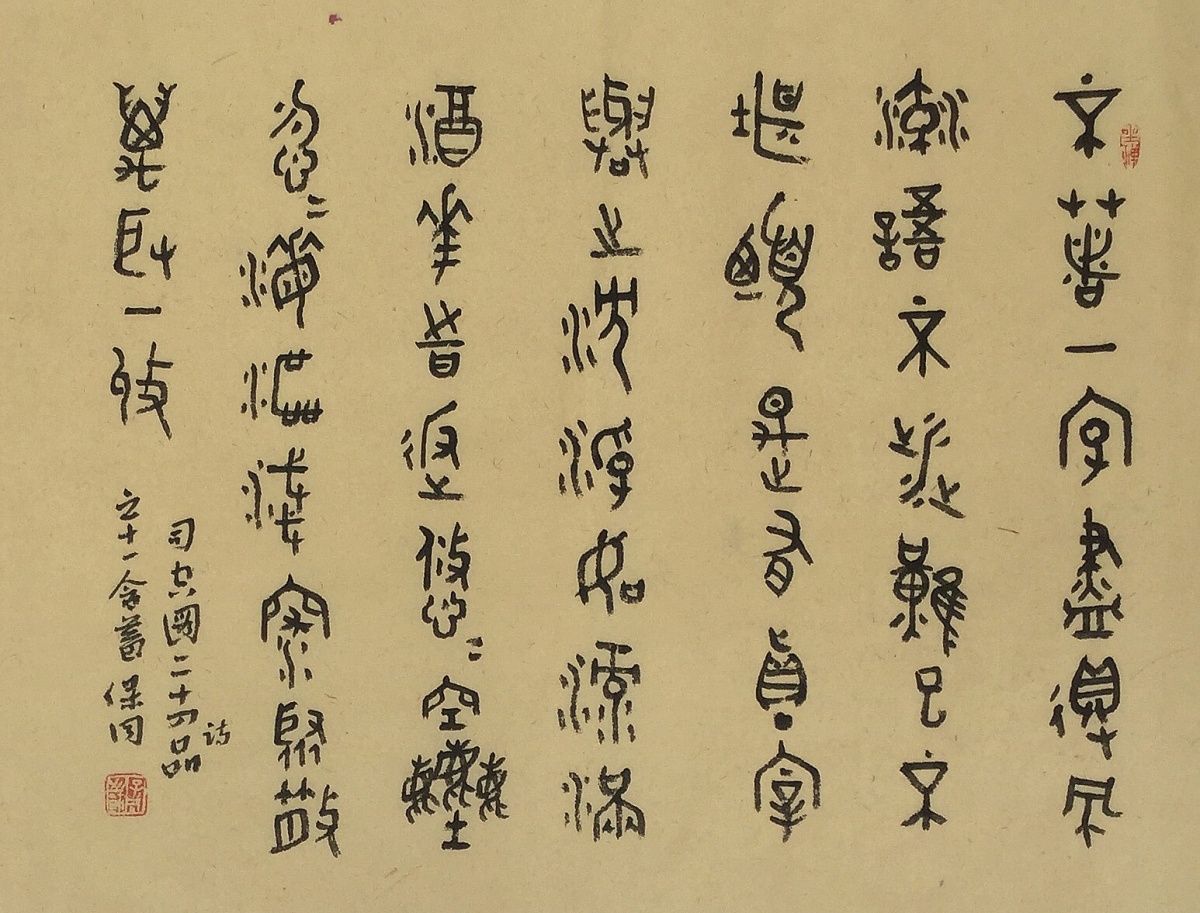 不著一字盡得風
流語不涉難已不
堪憂是有真宰
與之沈浮如淥滿
酒華時返悠〻空塵
忽〻海漚淺深聚散
萬取一收
司空圖二十四詩品
之十一含蓄 保同